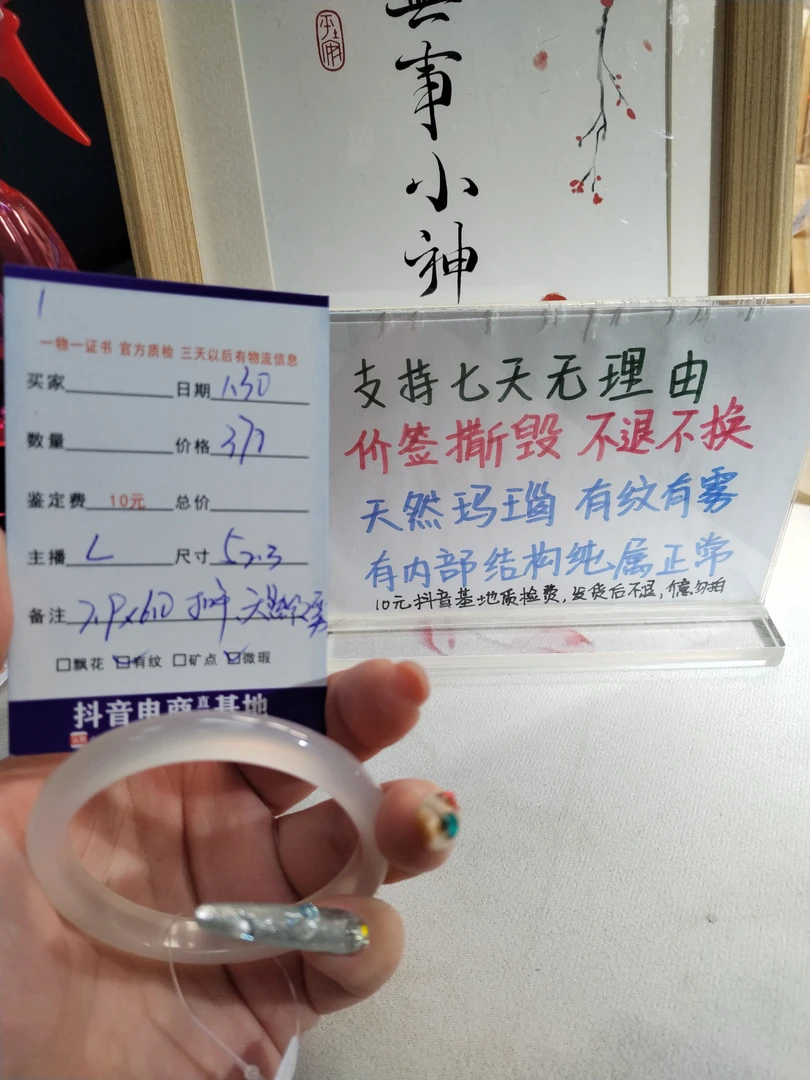 事小神
一物一证书 官方质检 三天以后有物流信息
买家 日期 1.30
数量 价格 377
鉴定费 10元 总价
主播 L 尺寸 57.3
备注
飘花 有纹 矿点 微瑕
抖音电商直 基地
支持七天无理由
价签撕毁 不退不换
天然玛瑙 有纹有雾
有内部结构纯属正常
10元抖音基地质检费,发货后不退,介意勿拍